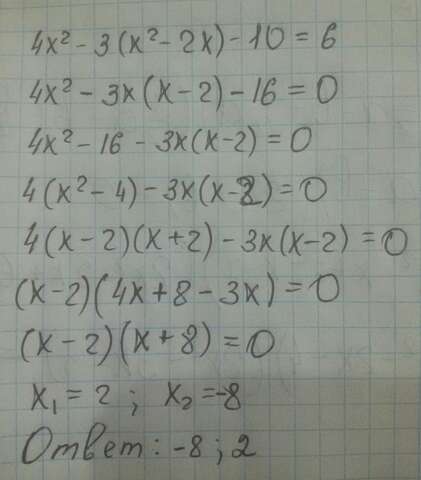 4x² - 3(x² - 2x) - 10 = 6
4x² - 3x(x - 2) - 16 = 0
4x² - 16 - 3x(x - 2) = 0
4(x² - 4) - 3x(x - 2) = 0
4(x - 2)(x + 2) - 3x(x - 2) = 0
(x - 2)(4x + 8 - 3x) = 0
(x - 2)(x + 8) = 0
x₁ = 2 ; x₂ = -8
Ответ: -8 ; 2